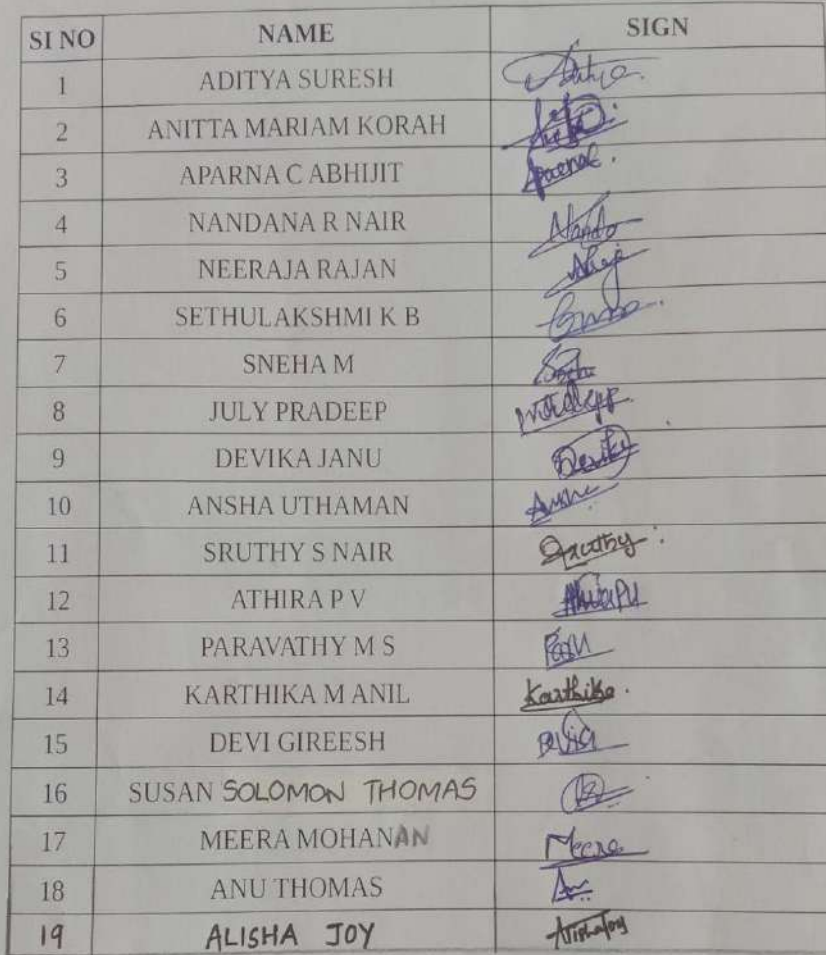 SI NO NAME SIGN
1 ADITYA SURESH
2 ANITTA MARIAM KORAH
3 APARNA C ABHIJIT
4 NANDANA R NAIR
5 NEERAJA RAJAN
6 SETHULAKSHMI K B
7 SNEHA M
8 JULY PRADEEP
9 DEVIKA JANU
10 ANSHA UTHAMAN
11 SRUTHY S NAIR
12 ATHIRA P V
13 PARAVATHY M S
14 KARTHIKA M ANIL Karthika.
15 DEVI GIREESH
16 SUSAN SOLOMON THOMAS
17 MEERA MOHANAN Meera
18 ANU THOMAS
19 ALISHA JOY AlishaJoy